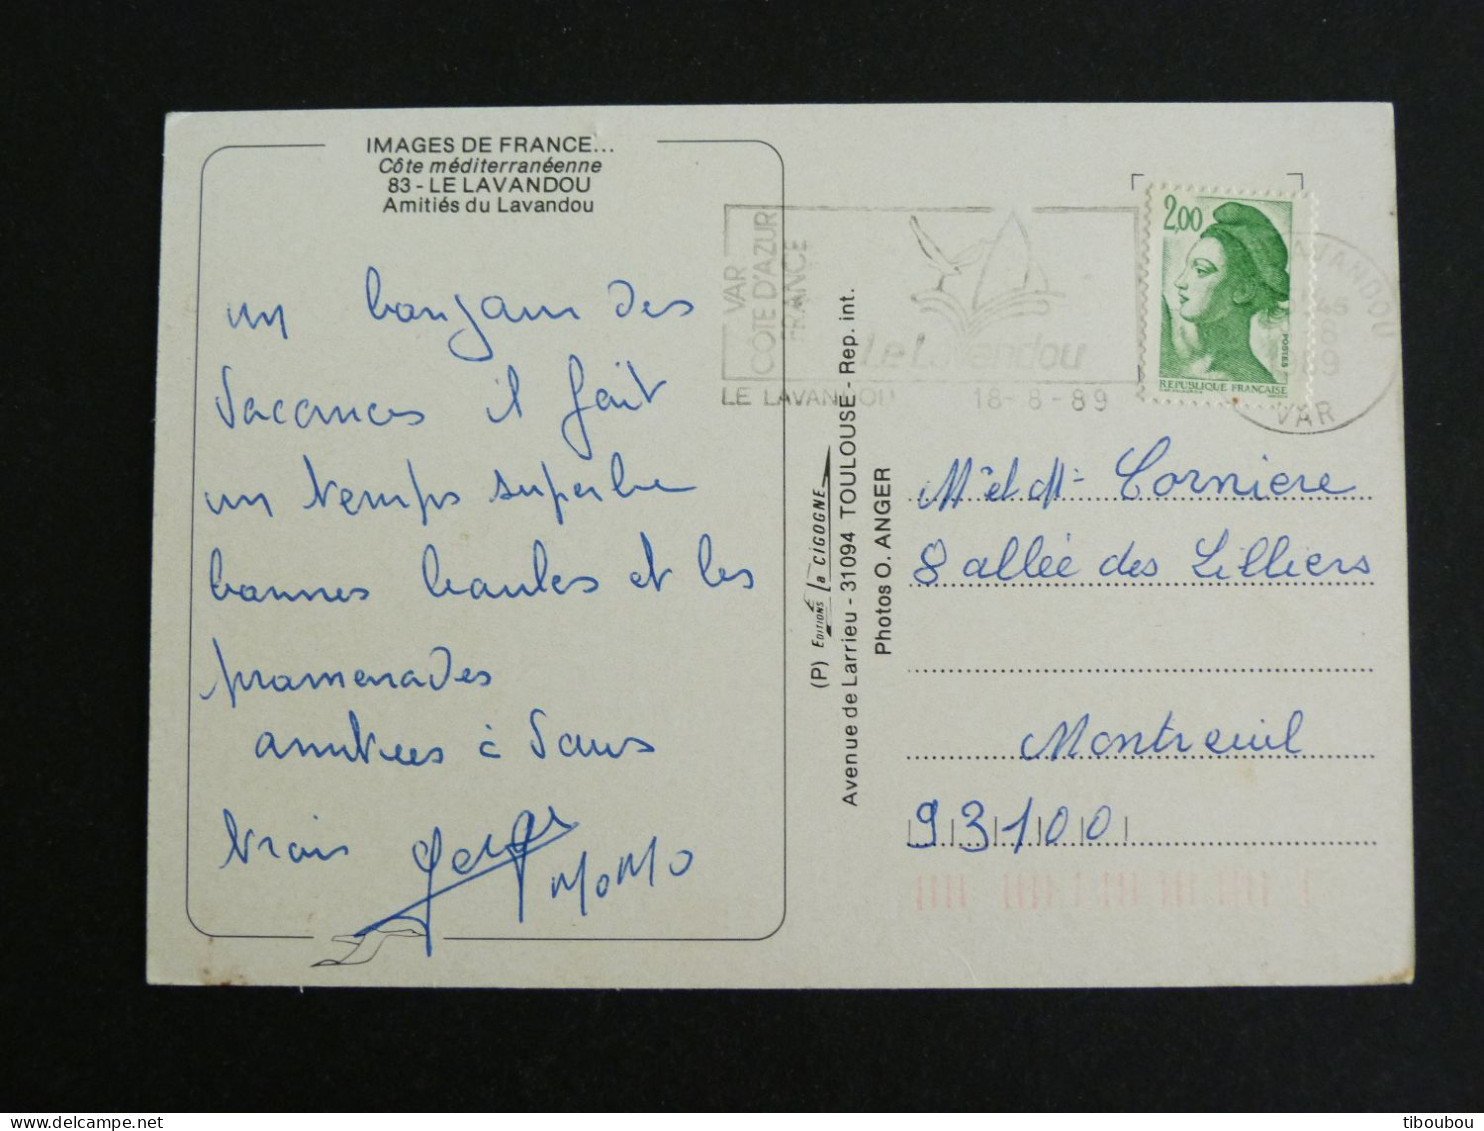 IMAGES DE FRANCE...
Côte méditerranéenne
83 - LE LAVANDOU
Amitiés du Lavandou
un bonjour des
vacances il fait
un temps superbe
bonnes baules et les
promenades
amitiees à vous
trois
MoMo
VAR
CÔTE D'AZUR
FRANCE
Le Lavandou
LE LAVANDOU 18-8-89
2,00
POSTES
REPUBLIQUE FRANÇAISE
LAVANDOU
VAR
(P) EDITIONS la CIGOGNE
Avenue de Larrieu - 31094 TOULOUSE - Rep. int.
Photos O. ANGER
Mr et Me Corniere
8 allée des Lilliers
Montreuil
93100
tiboubou